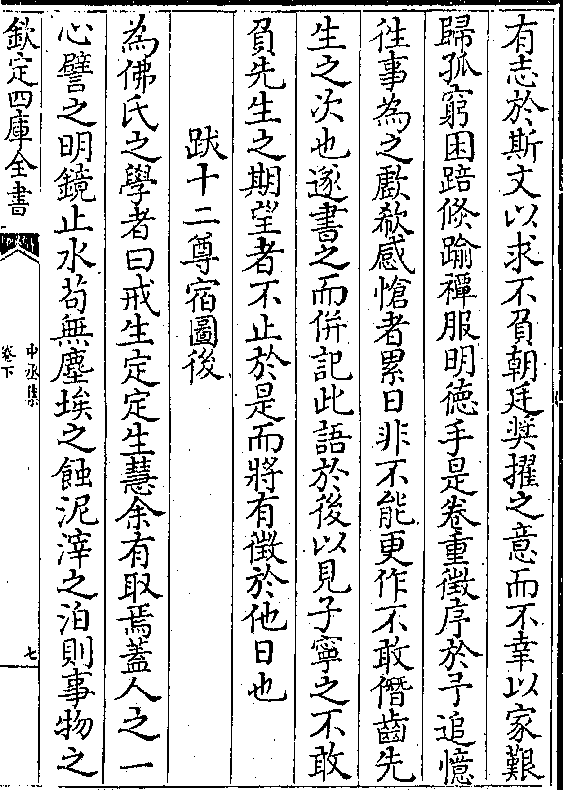 有志於斯文以求不負朝廷奨擢之意而不幸以家艱
歸孤窮困踣倐踰禫服明徳手是卷重徵序於予追憶
徃事為之歔欷感愴者累日非不能更作不敢僭齒先
生之次也遂書之而併記此語於後以見子寧之不敢
負先生之期望者不止於是而將有徵於他日也
跋十二尊宿圖後
為佛氏之學者曰戒生定定生慧余有取焉蓋人之一
心譬之明鏡止水苟無塵埃之蝕泥滓之泊則事物之
欽定四庫全書
中丞集
卷下
七